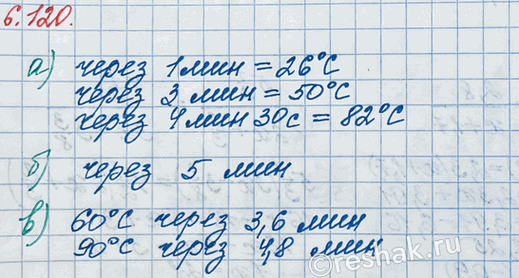 6.120.
а) через 1 мин = 26°С
через 3 мин = 50°С
через 4 мин 30с = 82°С
б) через 5 мин
в) 60°С через 3,6 мин
90°С через 4,8 мин
reshak.ru